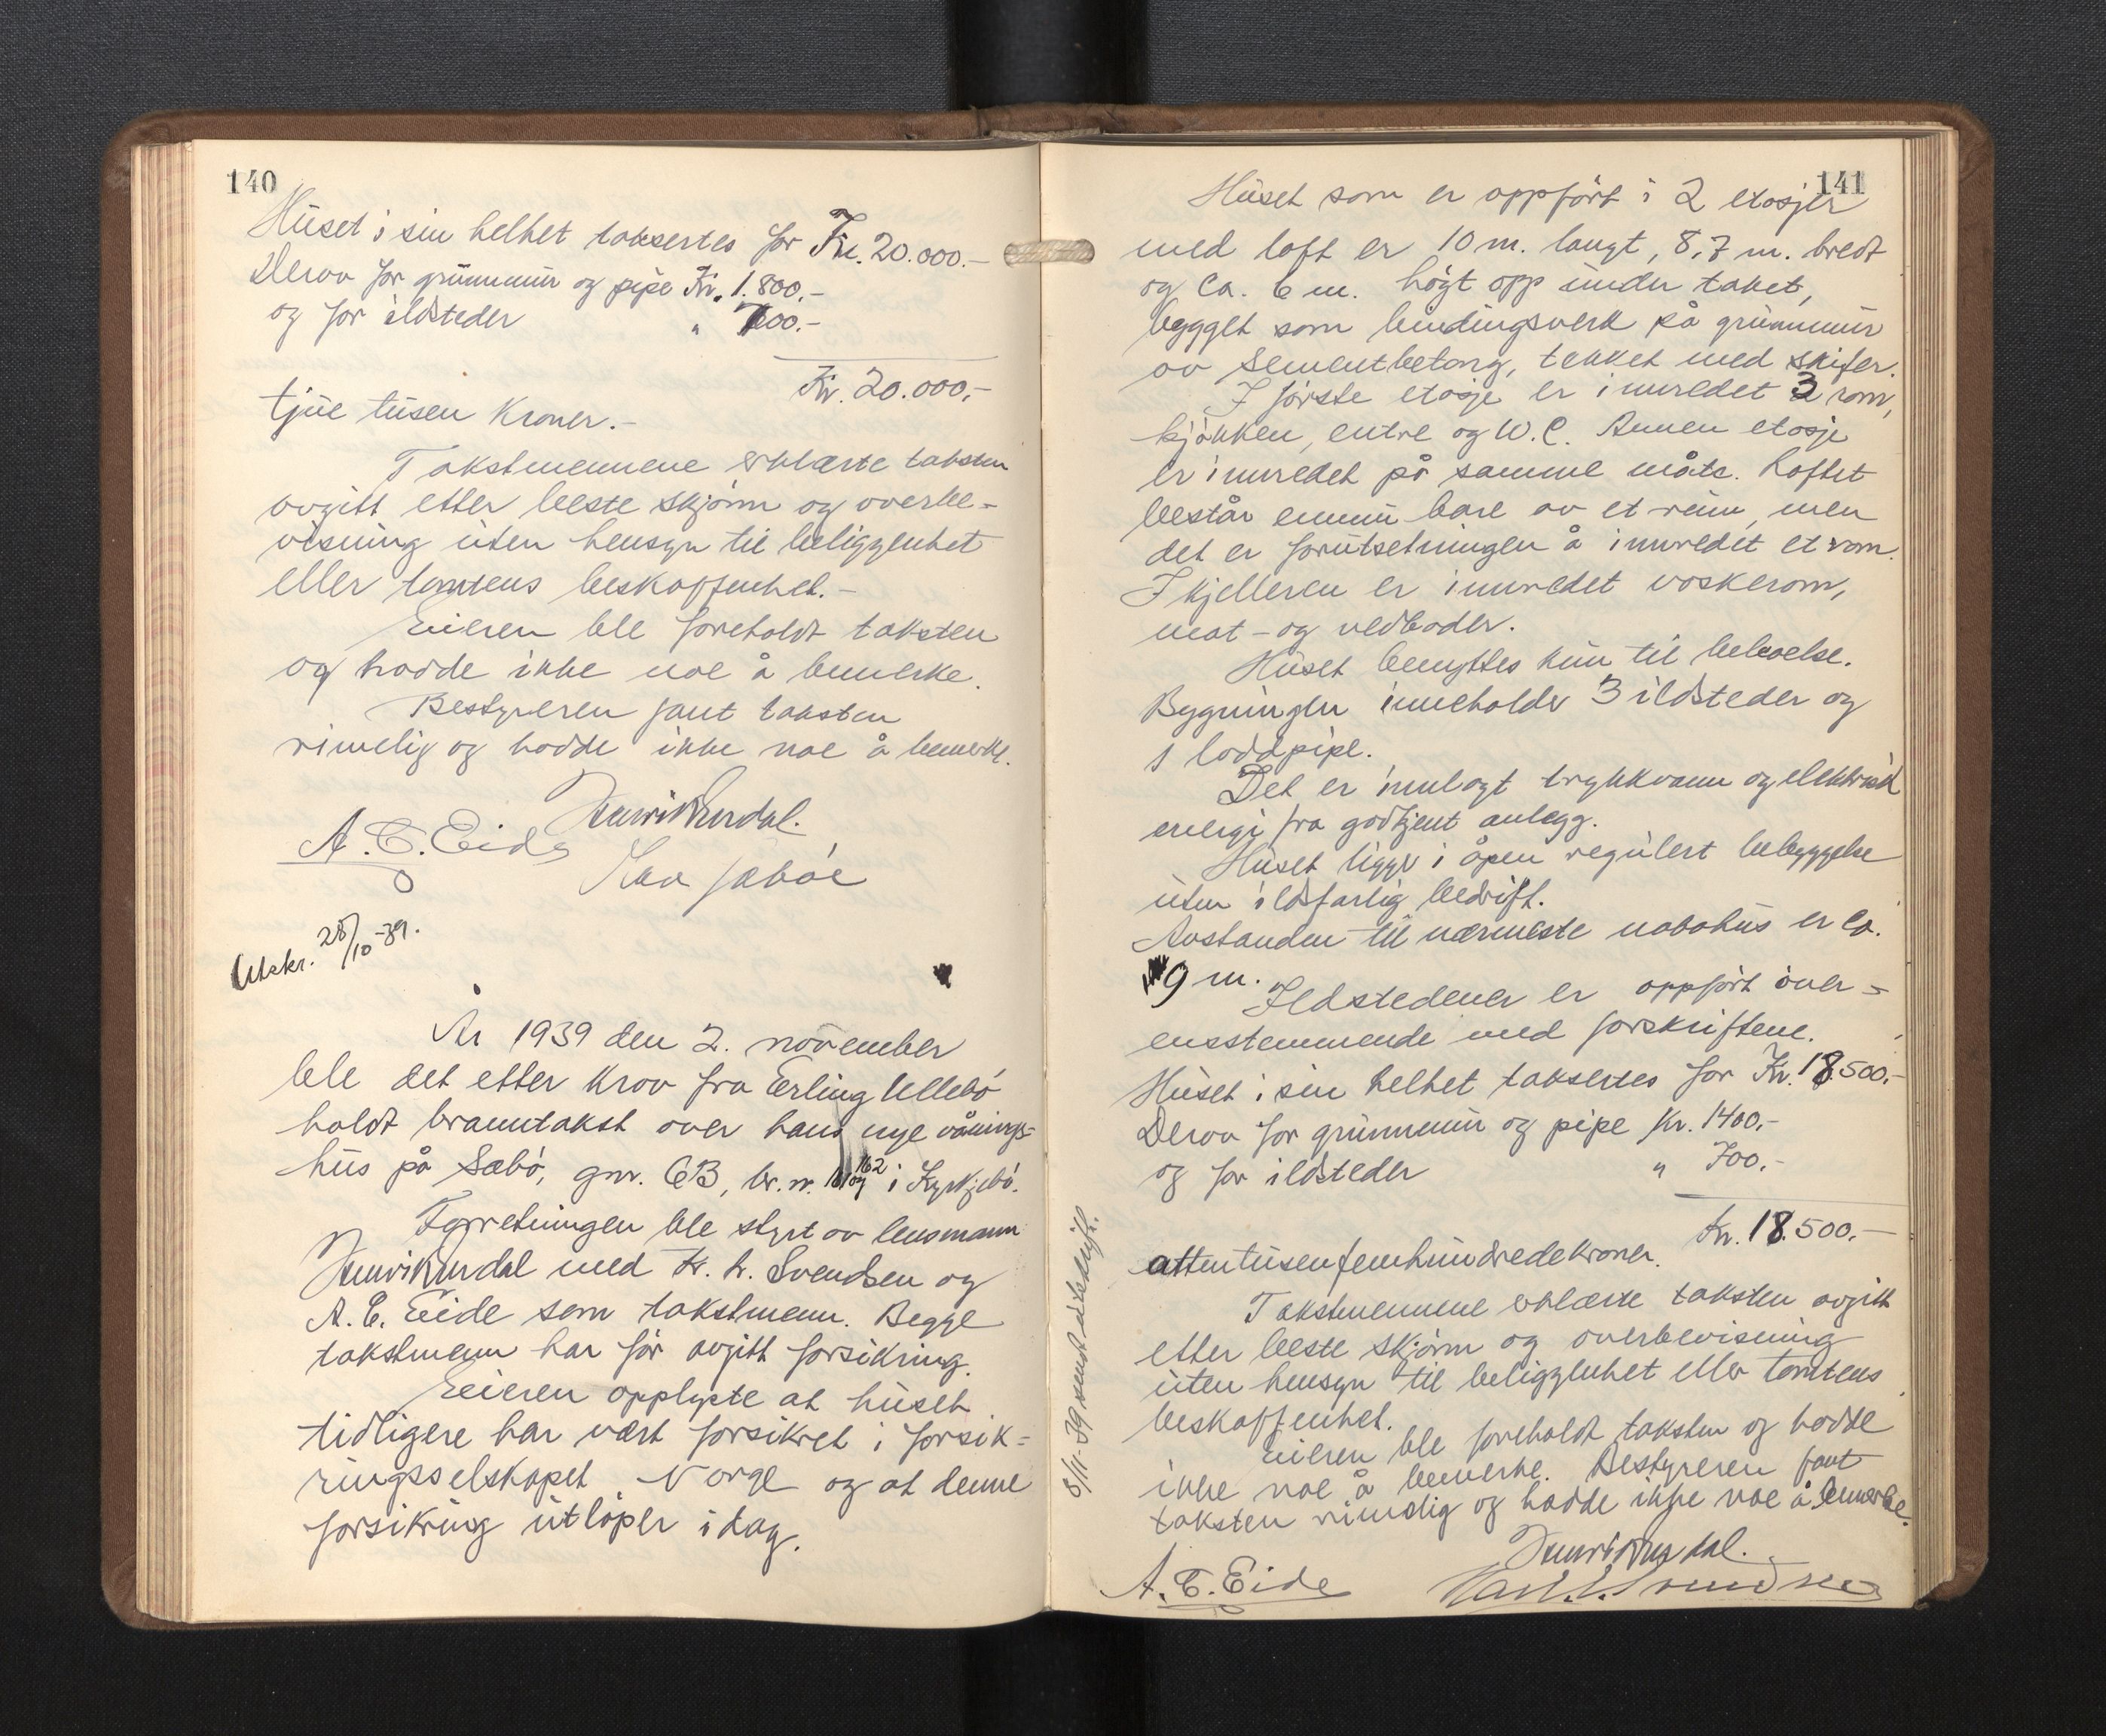 140
Huset i sin helhet taksertes for Kr. 20.000.-
Derav for grunnmur og pipe Kr. 1.800,-
og for ildsteder " 700.-
Kr. 20.000,-
tjue tusen Kroner.-
Takstmennene erklærte taksten
avgitt etter beste skjønn og overbe-
visning uten hensyn til beliggenhet
eller tomtens beskaffenhet.-
Eieren ble foreholdt taksten
og hadde ikke noe å bemerke.
Bestyreren fant taksten
rimelig og hadde ikke noe å bemerke.
A. E. Eide
Utskr. 28/10-39.
År 1939 den 2. november
ble det etter krav fra Erling Ullebø
holdt branntakst over hans nye vånings-
hus på Sæbø, gnr. 63, br. nr. 162 i Kyrkjebø.
Forretningen ble styrt av lensmann
med Kr. L. Svendsen og
A. E. Eide som takstmenn. Begge
takstmenn har før avgitt forsikring.
Eieren opplyste at huset
tidligere har vært forsikret i forsik-
ringsselskapet Norge og at denne
forsikring utløper i dag.
141
Huset som er oppført i 2 etasjer
med loft er 10 m. langt, 8,7 m. bredt
og ca. 6 m. høgt opp under taket,
bygget som bindingsverk på grunnmur
av sementbetong, tekket med skifer.
I første etasje er innredet 3 rom,
kjøkken, entre og W.C. Annen etasje
er innredet på samme måte. Loftet
består ennu bare av et rum, men
det er forutsetningen å innredet et rom.
I kjelleren er innredet vaskerom,
mat- og vedboder.
Huset benyttes kun til beboelse.
Bygningen inneholder 3 ildsteder og
1 loddpipe.
Det er innlagt trykkvann og elektrisk
energi fra godkjent anlegg.
Huset ligger i åpen regulert bebyggelse
uten ildsfarlig bedrift.
Avstanden til nærmeste nabohus er ca.
9 m.
Ildstedener er oppført over-
ensstemmende med forskriftene.
Huset i sin helhet taksertes for Kr. 18.500.-
Derav for grunnmur og pipe Kr. 1400,-
og for ildsteder " 700.-
Kr. 18.500.-
attentusenfemhundredekroner.
Takstmennene erklærte taksten avgitt
etter beste skjønn og overbevisning
uten hensyn til beliggenhet eller tomtens
beskaffenhet.
Eieren ble foreholdt taksten og hadde
ikke noe å bemerke. Bestyreren fant
taksten rimelig og hadde ikke noe å bemerke.
A. E. Eide
8/11-39 sendt utskrift.